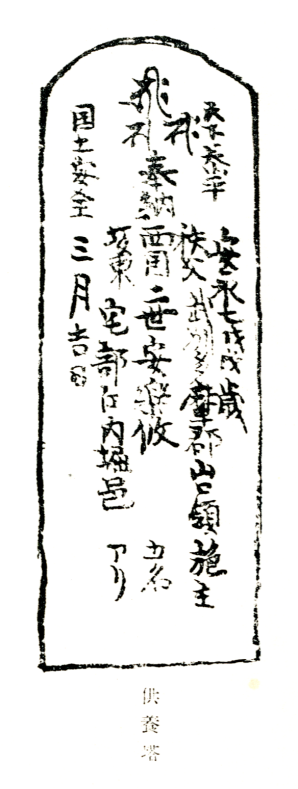 天下泰平
安永七戊戌歳
秩父 武州多摩郡山口領施主
奉納西国二世安楽攸 五名
坂東 宅部江内堀邑 アリ
国土安全 三月吉日
供養塔